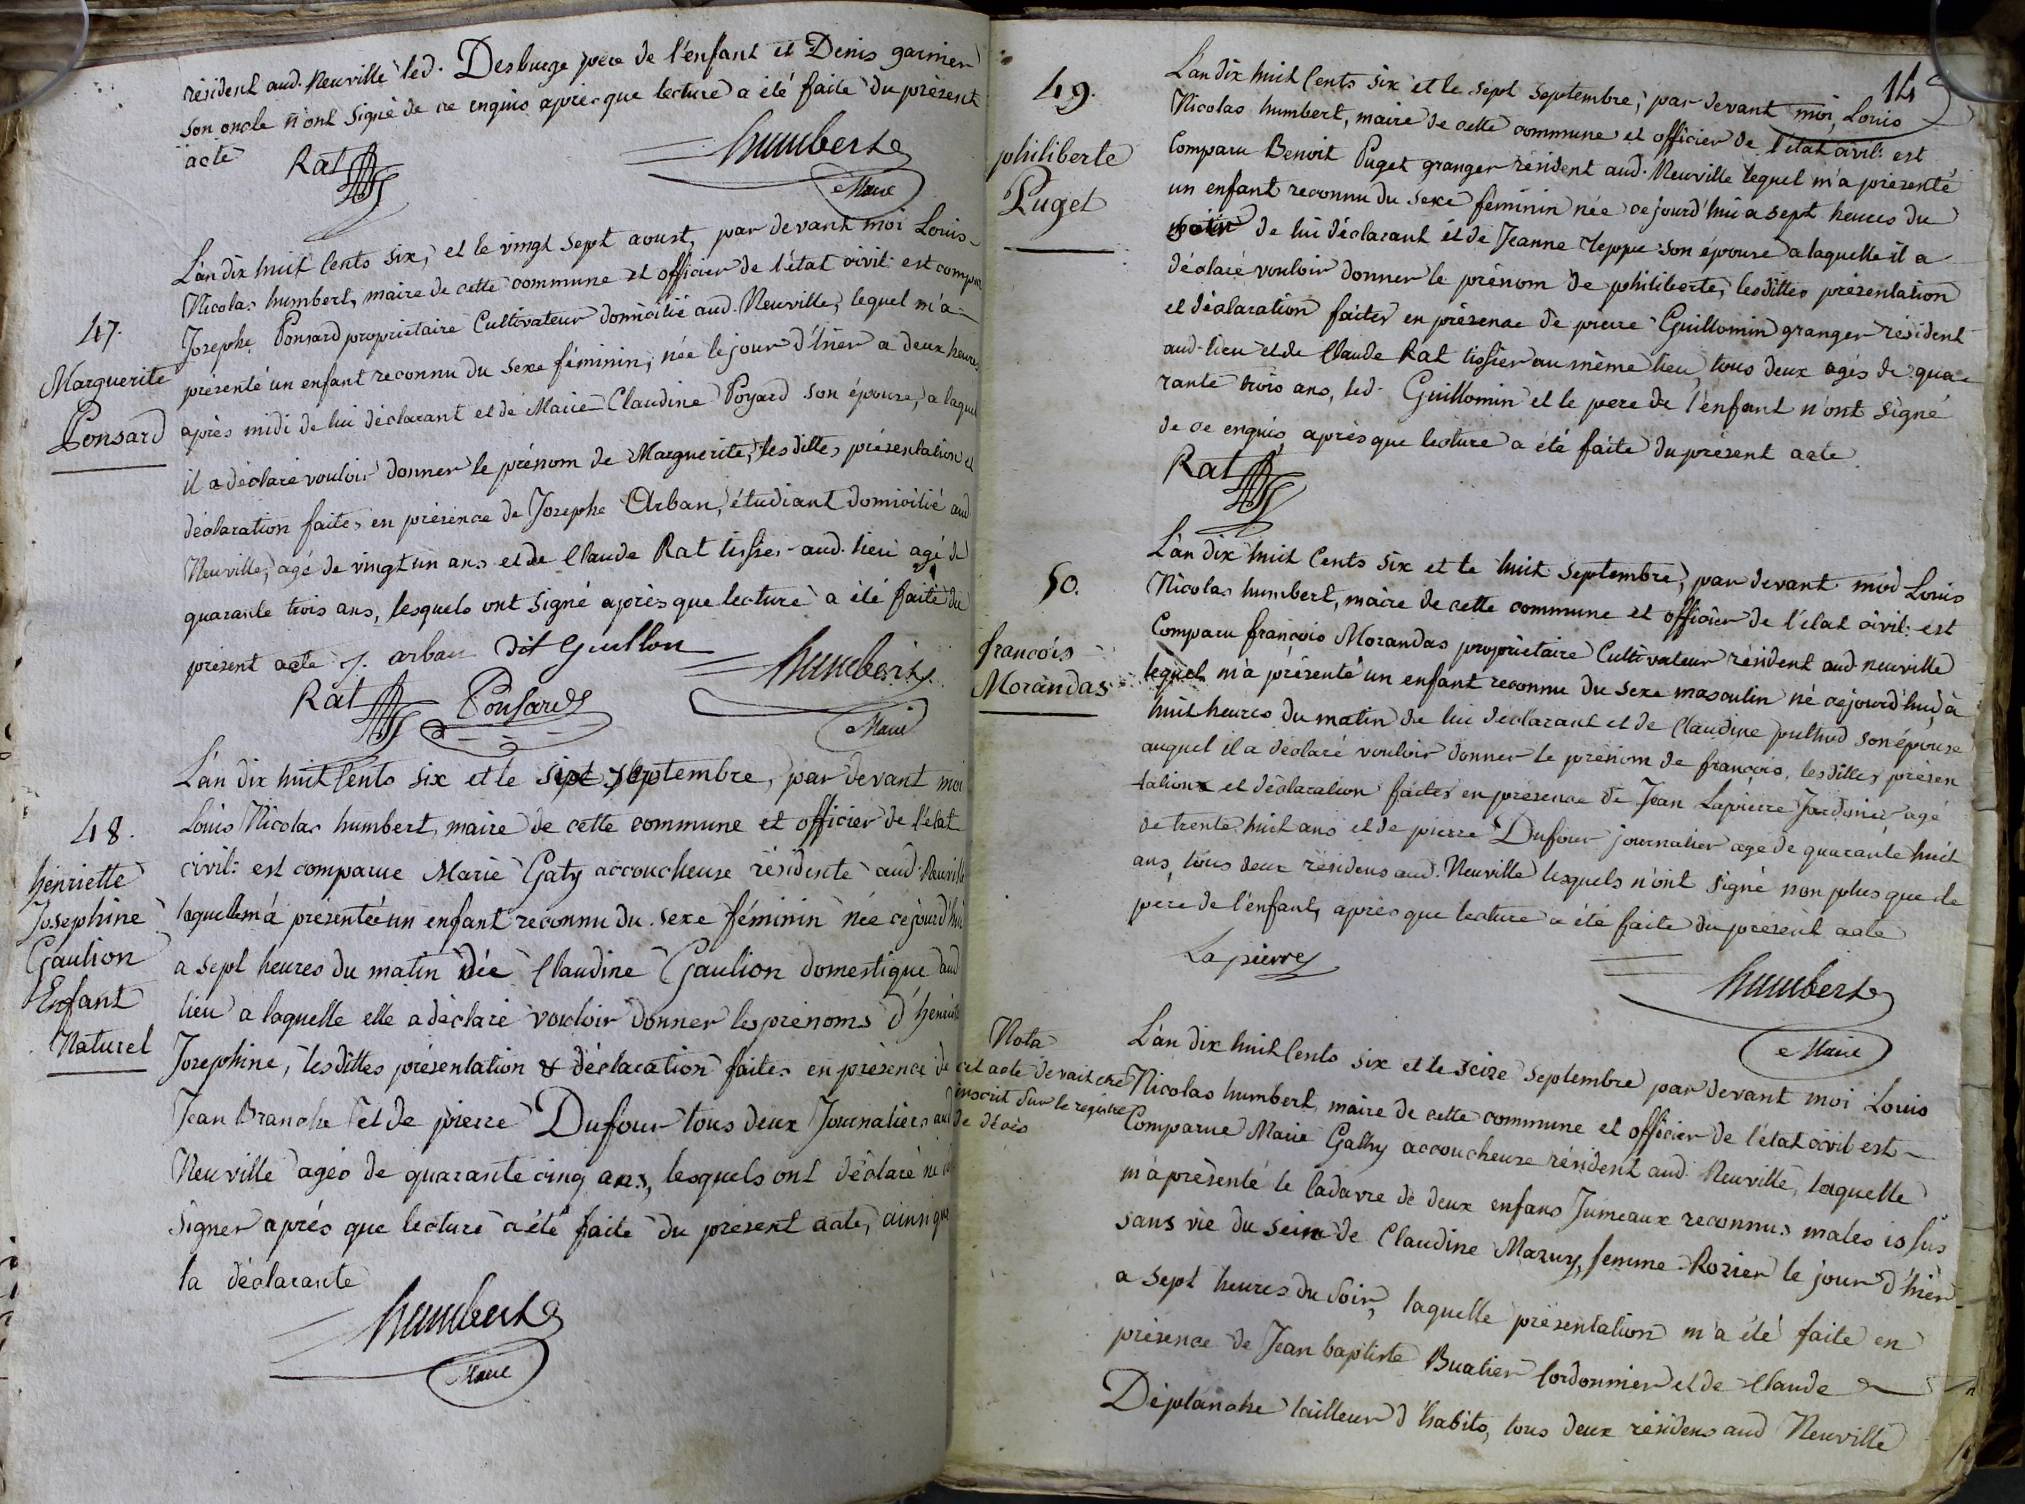 résident aud. Neuville led. Desburge père de l'enfant et Denis garnier
son oncle n'ont signé de ce enquis après que lecture a été faite du présent
acte
Rat
humbert
Maire
47.
Marguerite
Ponsard
L'an dix huit Cents six, et le vingt sept aoust, par devant moi Louis
Nicolas humbert, maire de cette commune et officier de l'état civil: est compar
Josephe Ponsard propriétaire Cultivateur domicilié aud. Neuville, lequel m'a
présenté un enfant reconnu du sexe féminin, née le jour d'hier a deux heures
après midi de lui déclarant et de Marie Claudine Poyard son épouse, a laquel
il a déclaré vouloir donner le prénom de Marguerite, lesdittes présentation et
déclaration faites en présence de Josephe Arban, étudiant domicilié aud
Neuville, agé de vingt un ans et de Claude Rat tissier aud. lieu agé de
quarante trois ans, lesquels ont signé après que lecture a été faite du
présent acte
J. arban dit Guillon
humbert
Rat
Ponsard
Maire
48.
henriette
Josephine
Gaulion
Enfant
Naturel
L'an dix huit Cents six et le sept septembre, par devant moi
Louis Nicolas humbert, maire de cette commune et officier de l'état
civil: est comparue Marie Gaty accoucheuse résidente aud. Neuville
laquelle m'a présentée un enfant reconnu du sexe féminin née cejourd'hui
a sept heures du matin dée Claudine Gaulion domestique aud
lieu a laquelle elle a déclaré vouloir donner les prénoms d'henriette
Josephine, lesdittes présentation & déclaration faites en présence de
Jean Branche et de pierre Dufour tous deux Journaliers aud
Neuville agés de quarante cinq ans, lesquels ont déclaré ne
signer après que lecture a été faite du présent acte, ainsi que
la déclarante
humbert
Maire
145
49.
philiberte
Puget
L'an dix huit Cents six et le sept septembre, par devant moi, Louis
Nicolas humbert, maire de cette commune et officier de l'état civil: est
Comparu Benoit Puget granger résident aud. Neuville lequel m'a présenté
un enfant reconnu du sexe féminin née cejourd'hui a sept heures du
de lui déclarant et de Jeanne Teppe son épouse a laquelle il a
déclaré vouloir donner le prénom de philiberte, lesdittes présentation
et déclaration faites en présence de pierre Guillomin granger résident
aud. lieu et de Claude Rat tissier au même lieu, tous deux agés de qua-
rante trois ans, led. Guillomin et le pere de l'enfant n'ont signé
de ce enquis, après que lecture a été faite du présent acte.
Rat
50.
françois
Morandas
L'an dix huit Cents six et le huit septembre, par devant moi Louis
Nicolas humbert, maire de cette commune et officier de l'état civil: est
Comparu françois Morandas propriétaire Cultivateur résident aud. neuville
lequel m'a présenté un enfant reconnu du sexe masculin né cejourd'hui, à
huit heures du matin de lui déclarant et de Claudine son épouse
auquel il a déclaré vouloir donner le prénom de françois, lesdittes présen
tation et déclaration faites en présence de Jean Lapierre Jardinier agé
de trente huit ans et de pierre Dufour journalier agé de quarante huit
ans, tous deux résidens aud. Neuville lesquels n'ont signé non plus que le
père de l'enfant, après que lecture a été faite du présent acte
Lapierre
humbert
Maire
Nota
cet acte devait être
inscrit sur le registre
de décès
L'an dix huit Cents six et le seize septembre par devant moi Louis
Nicolas humbert, maire de cette commune et officier de l'état civil est
Comparue Marie Gathy accoucheuse résident aud. Neuville, laquelle
m'a présenté le Cadavre de deux enfans Jumeaux reconnus males issus
sans vie du sein de Claudine Mazuy, femme Rozier le jour d'hier
a sept heures du soir, laquelle présentation m'a été faite en
présence de Jean baptiste Buatier Cordonnier et de Claude
Déplanche tailleur d'habits, tous deux résidens aud Neuville